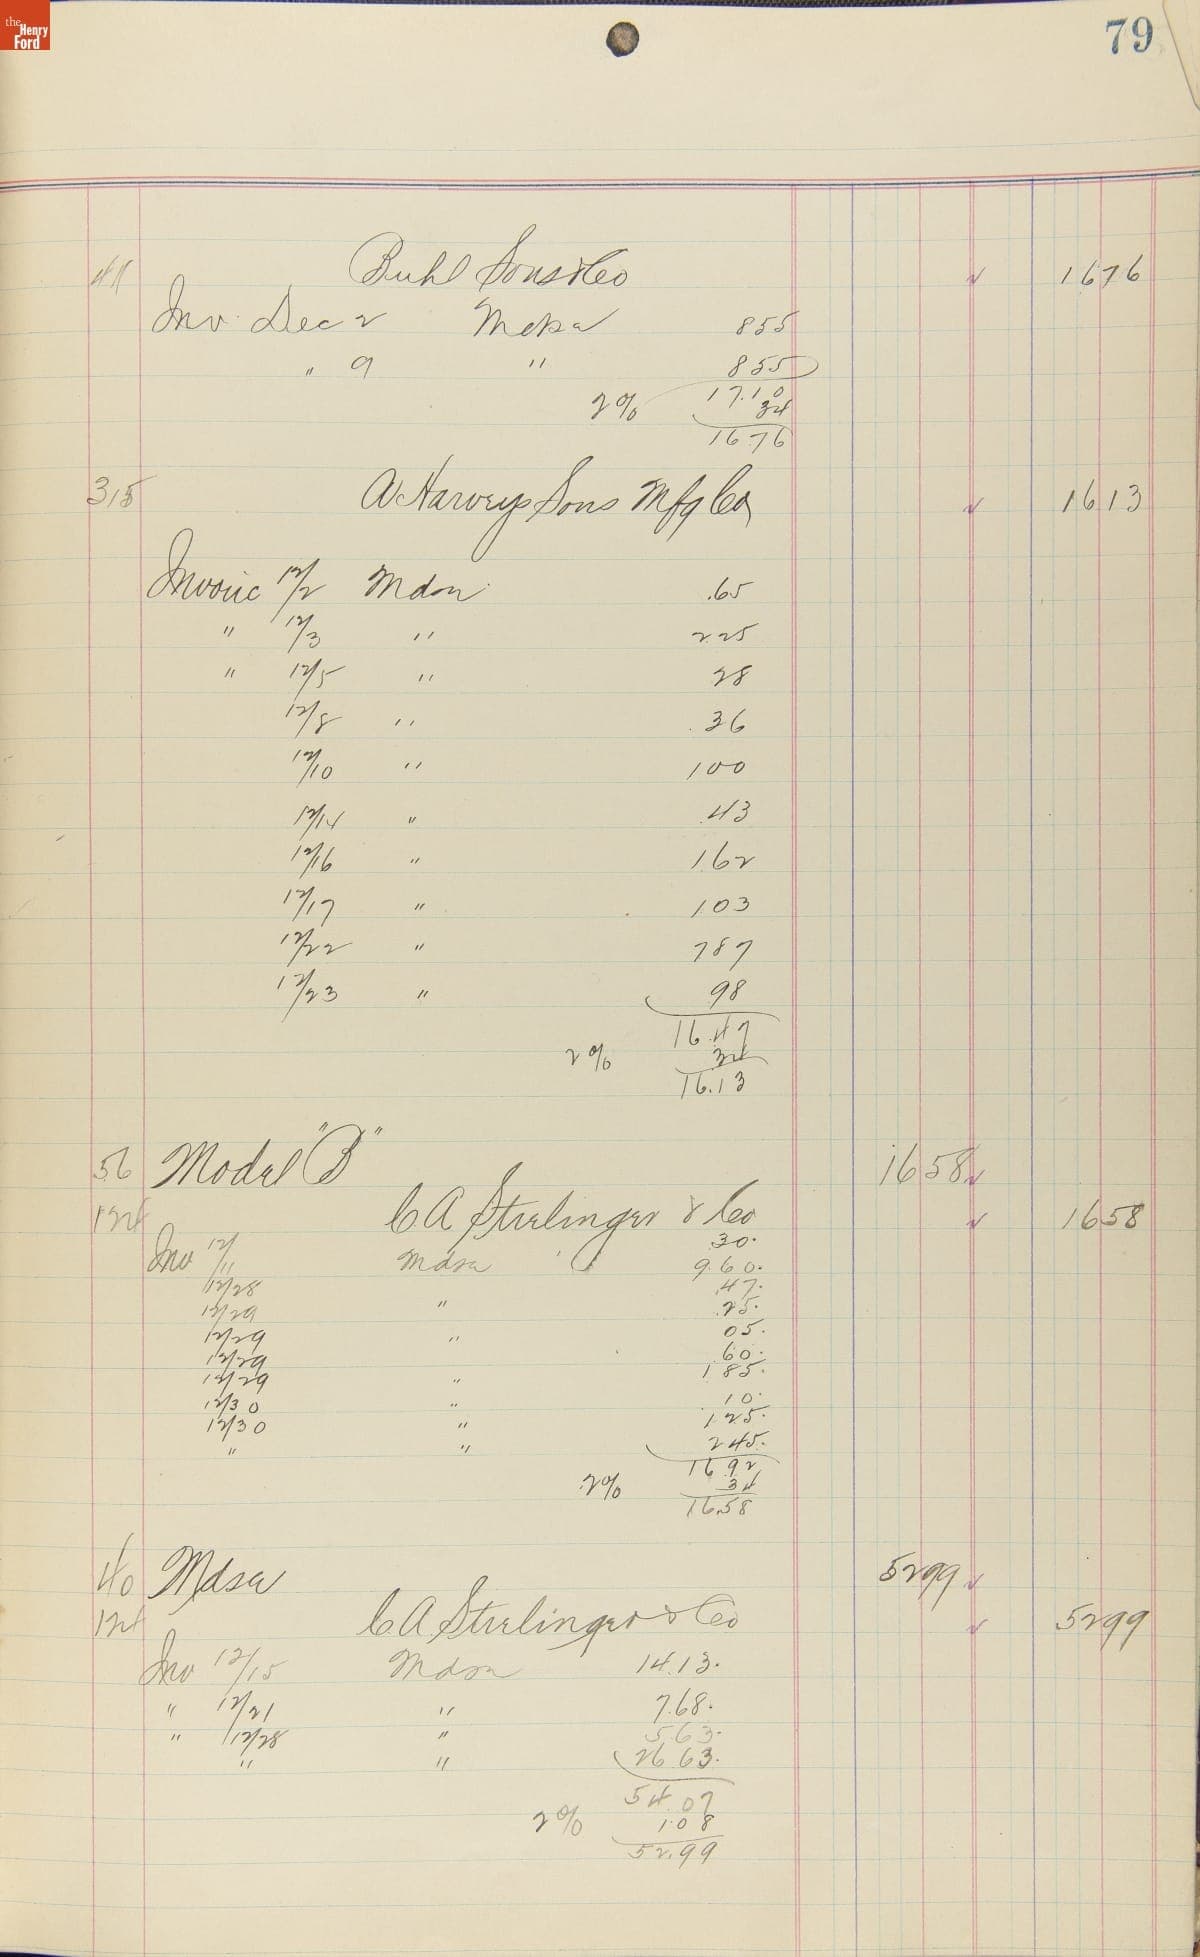 the
Henry
Ford
79
41 Buhl Sons & Co √ 1676
Inv. Dec 2 Mdse 855
" 9 " 855
17.10
2% 34
16.76
315 A Harvey Sons Mfg Co √ 1613
Invoice 12/2 Mdse .65
" 12/3 " 2.25
" 12/5 " 28
12/8 " .36
12/10 " 100
12/14 " .43
12/16 " 1.62
12/17 " 1.03
12/22 " 787
12/23 " 98
16.47
2% 34
16.13
56 Model "B" 1658 √
124 C A Strelinger & Co √ 1658
.30.
Inv 12/11 Mdse 9.60.
12/28 .47.
12/29 " .25.
12/29 " 05.
12/29 .60.
12/29 " 1.85.
12/30 " .10.
12/30 " 1.25.
" " 245.
16.92
2% 34
16.58
40 Mdse 5299 √
124 C A Strelinger & Co √ 5299
Inv 12/15 Mdse 14.13.
" 12/21 " 7.68.
" 12/28 " 5.63.
" " 26 63.
54.07
2% 1.08
52.99